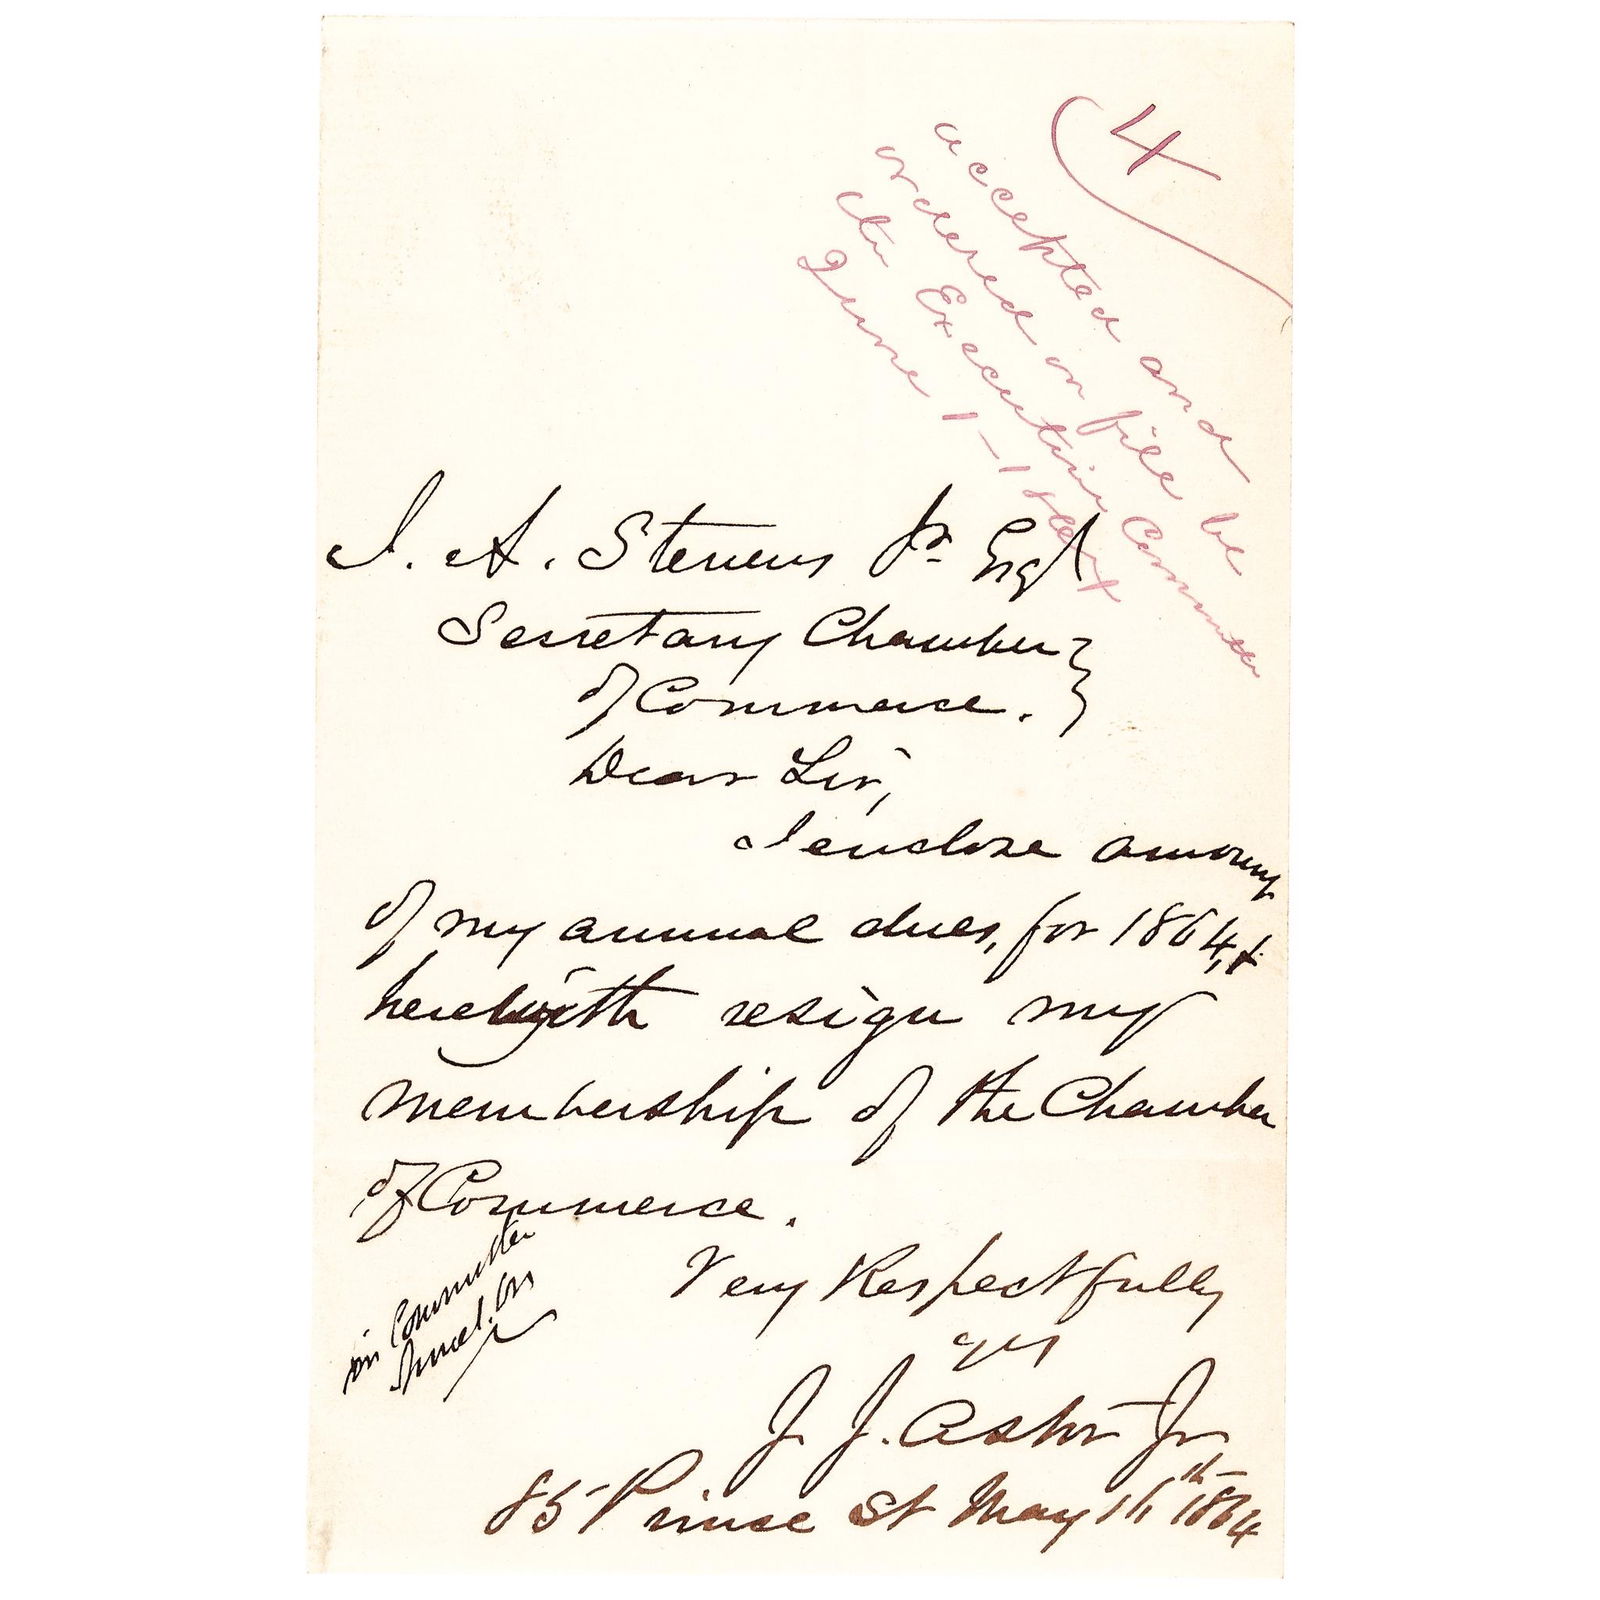 4
accepted and
ordered on file by
the Executive Committee
June 1 - 1864
J. A. Stevens Jr. Esq
Secretary Chamber
of Commerce.
Dear Sir,
I enclose amount
of my annual dues, for 1864, &
herewith resign my
membership of the Chamber
of Commerce.
Very Respectfully
yrs
J. J. Astor Jr.
85 Prince St May 16th 1864
in Committee